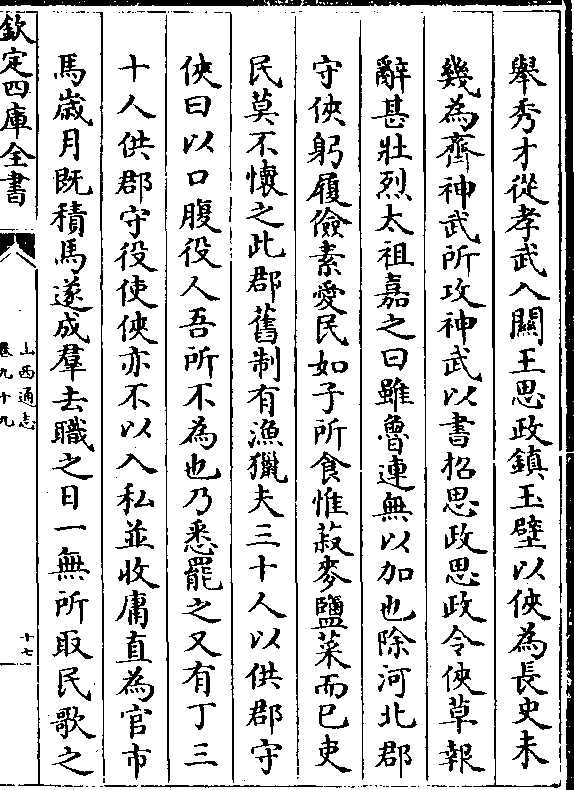 舉秀才從孝武入關王思政鎮玉壁以俠為長史未
幾為齊神武所攻神武以書招思政思政令俠草報
辭甚壯烈太祖嘉之曰雖魯連無以加也除河北郡
守俠躬履儉素愛民如子所食惟菽麥鹽菜而已吏
民莫不懷之此郡舊制有漁獵夫三十人以供郡守
俠曰以口腹役人吾所不為也乃悉罷之又有丁三
十人供郡守役使俠亦不以入私並收庸直為官市
馬歲月既積馬遂成羣去職之日一無所取民歌之
欽定四庫全書
山西通志
卷九十九
十七